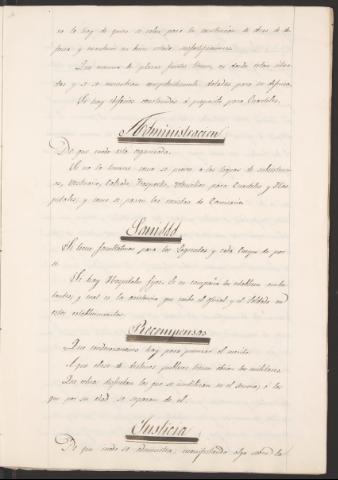 no lo hay de que se valen para la construccion de obras de de
fensa y mantener en buen estado sus fortificaciones.
Que numero de plazas fuertes tienen, en donde estan situa-
das y si se encuentran completamente dotadas para su defensa.
Si hay edificios construidos á proposito para Cuarteles.
Administracion
De que modo esta organizada.
Si no la tienen como se provee á las tropas de subsistenci-
as, Vestuario, Calzado, Trasportes, Utensilios para Cuarteles y Hos-
pitales, y como se pasan las revistas de Comisario.
Sanidad
Si tiene facultativos para los Hospitales y cada Cuerpo de por
si.
Si hay Hospitales fijos. Si en campaña los establecen ambu-
lantes, y cual es la asistencia que recibe el oficial y el Soldado en
estos establecimientos.
Recompensas
Que condecoraciones hay para premiar el merito.
A que clase de destinos publicos tienen obcion los militares.
Que retiro disfrutan los que se inutilizan en el servicio, ó los
que por su edad se separan de el.
Justicia
De que modo se administra, manifestando algo sobre la